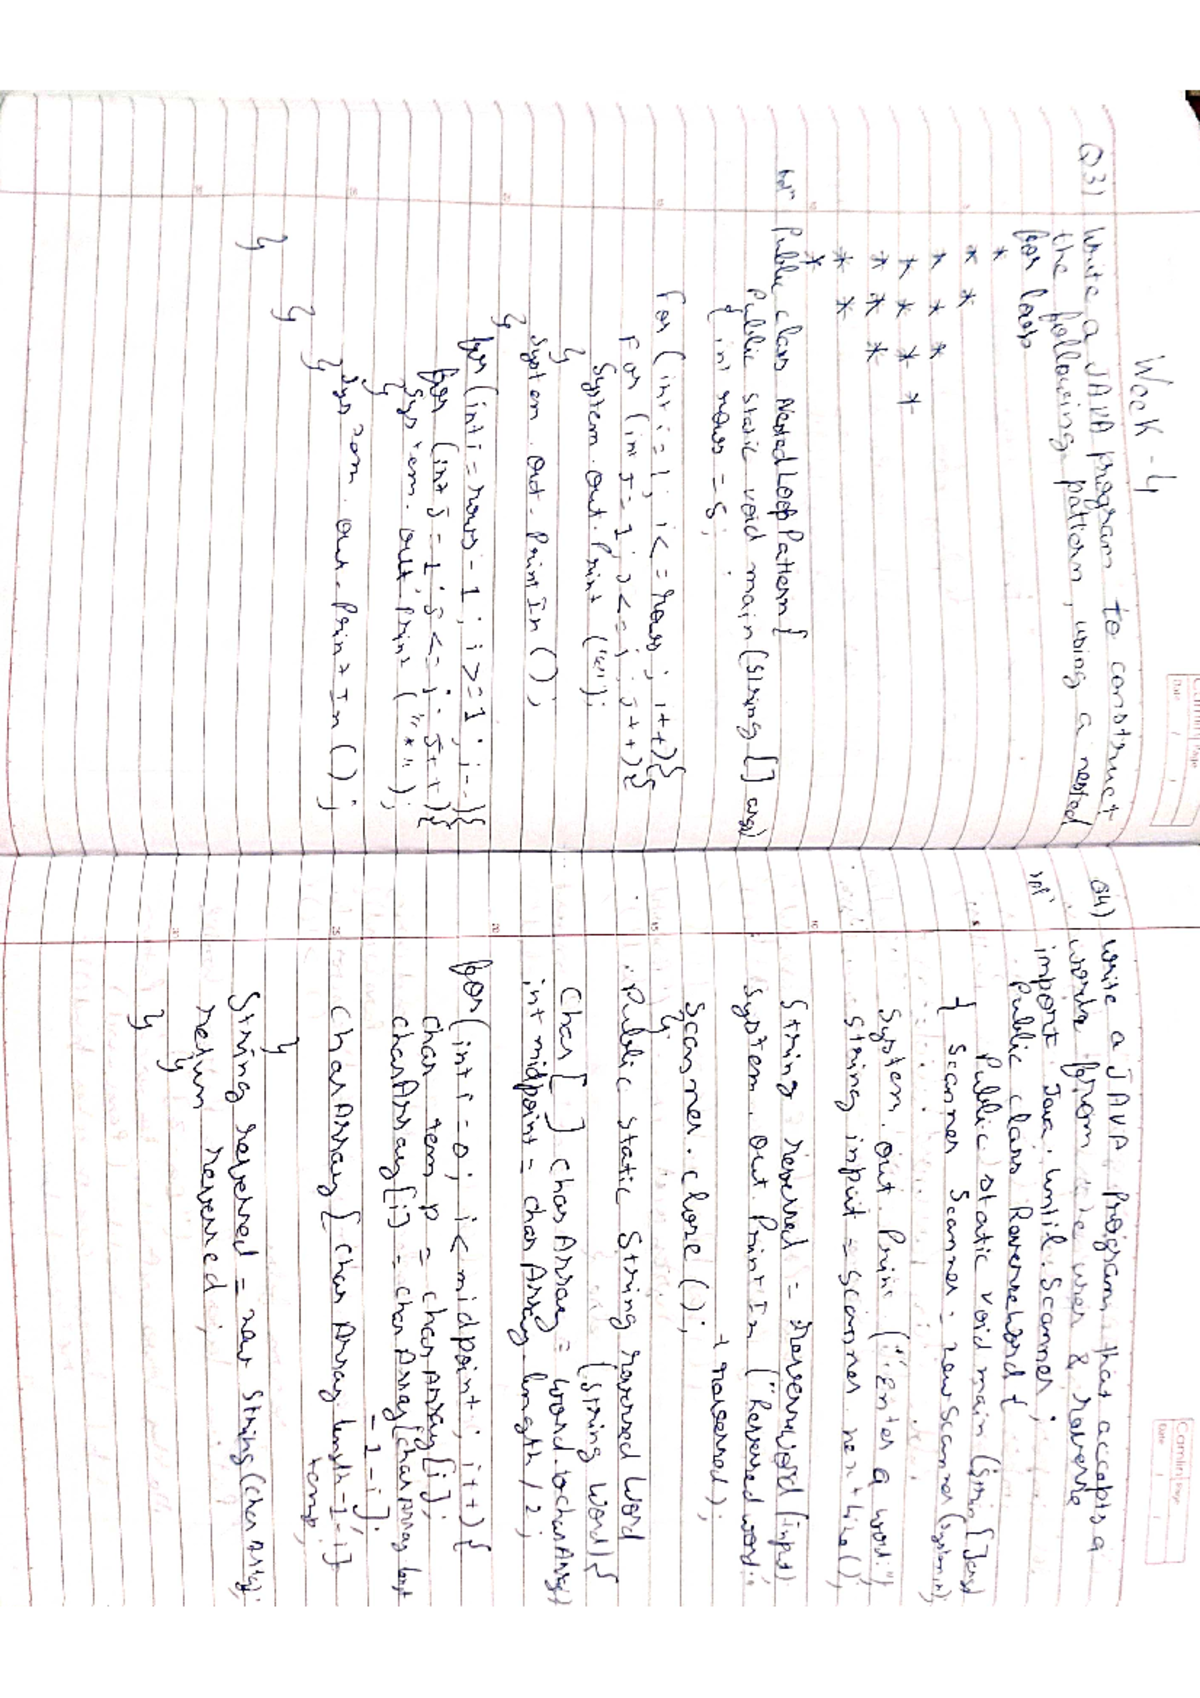 Week - 4
Q3) Write a JAVA program to construct
the following pattern, using a nested
for loop
*
* *
* * *
* * * *
* * *
* *
*
Public class NestedLoopPattern {
Public static void main (String [] args)
{ int rows = 5;
For (int i = 1; i < = rows; i++) {
For (int J = 1; J < = i; J++) {
System.out.Print ("*");
}
System.out.PrintIn ();
}
for (int i = rows - 1; i > = 1; i--) {
for (int J = 1; J < = i; J++) {
System.out.Print ("*");
}
System.out.PrintIn ();
}
}
}
Q4) Write a JAVA Program that accepts a
words from the user & reverse
import Java.until.Scanner;
Public class ReverseWord {
Public static void main (String [] args)
{ Scanner Scanner = new Scanner (System.in);
System.out.Print ("Enter a word:");
String input = Scanner.nextLine ();
String reversed = reverseWord (input);
System.out.PrintIn ("Reversed word:"
+ reversed);
Scanner.close ();
}
Public static String reversed Word
(String Word) {
Char [ ] charArray = word.tocharArray()
int midpoint = charArray.length / 2;
for (int i = 0; i < midpoint; i++) {
Char temp = charArray [i];
CharArray [i] = charArray [charArray.lengt
- 1 - i];
CharArray [charArray.length - 1 - i] =
temp;
}
String reversed = new String (charArray);
return reversed;
}
}